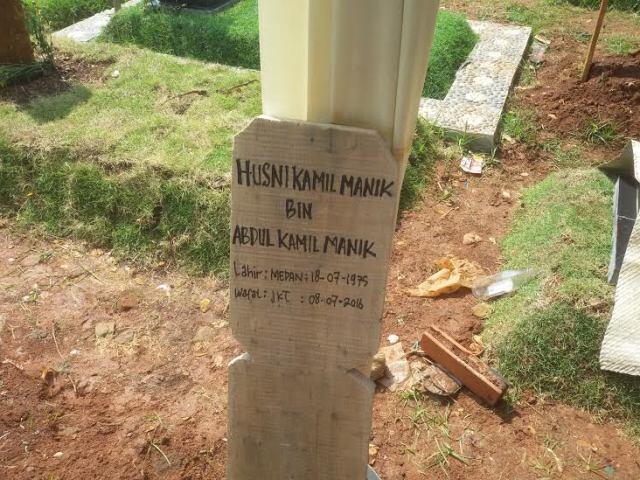 HUSNI KAMIL MANIK
BIN
ABDUL KAMIL MANIK
Lahir: MEDAN: 18-07-1975
Wafat: JKT : 08-07-2016